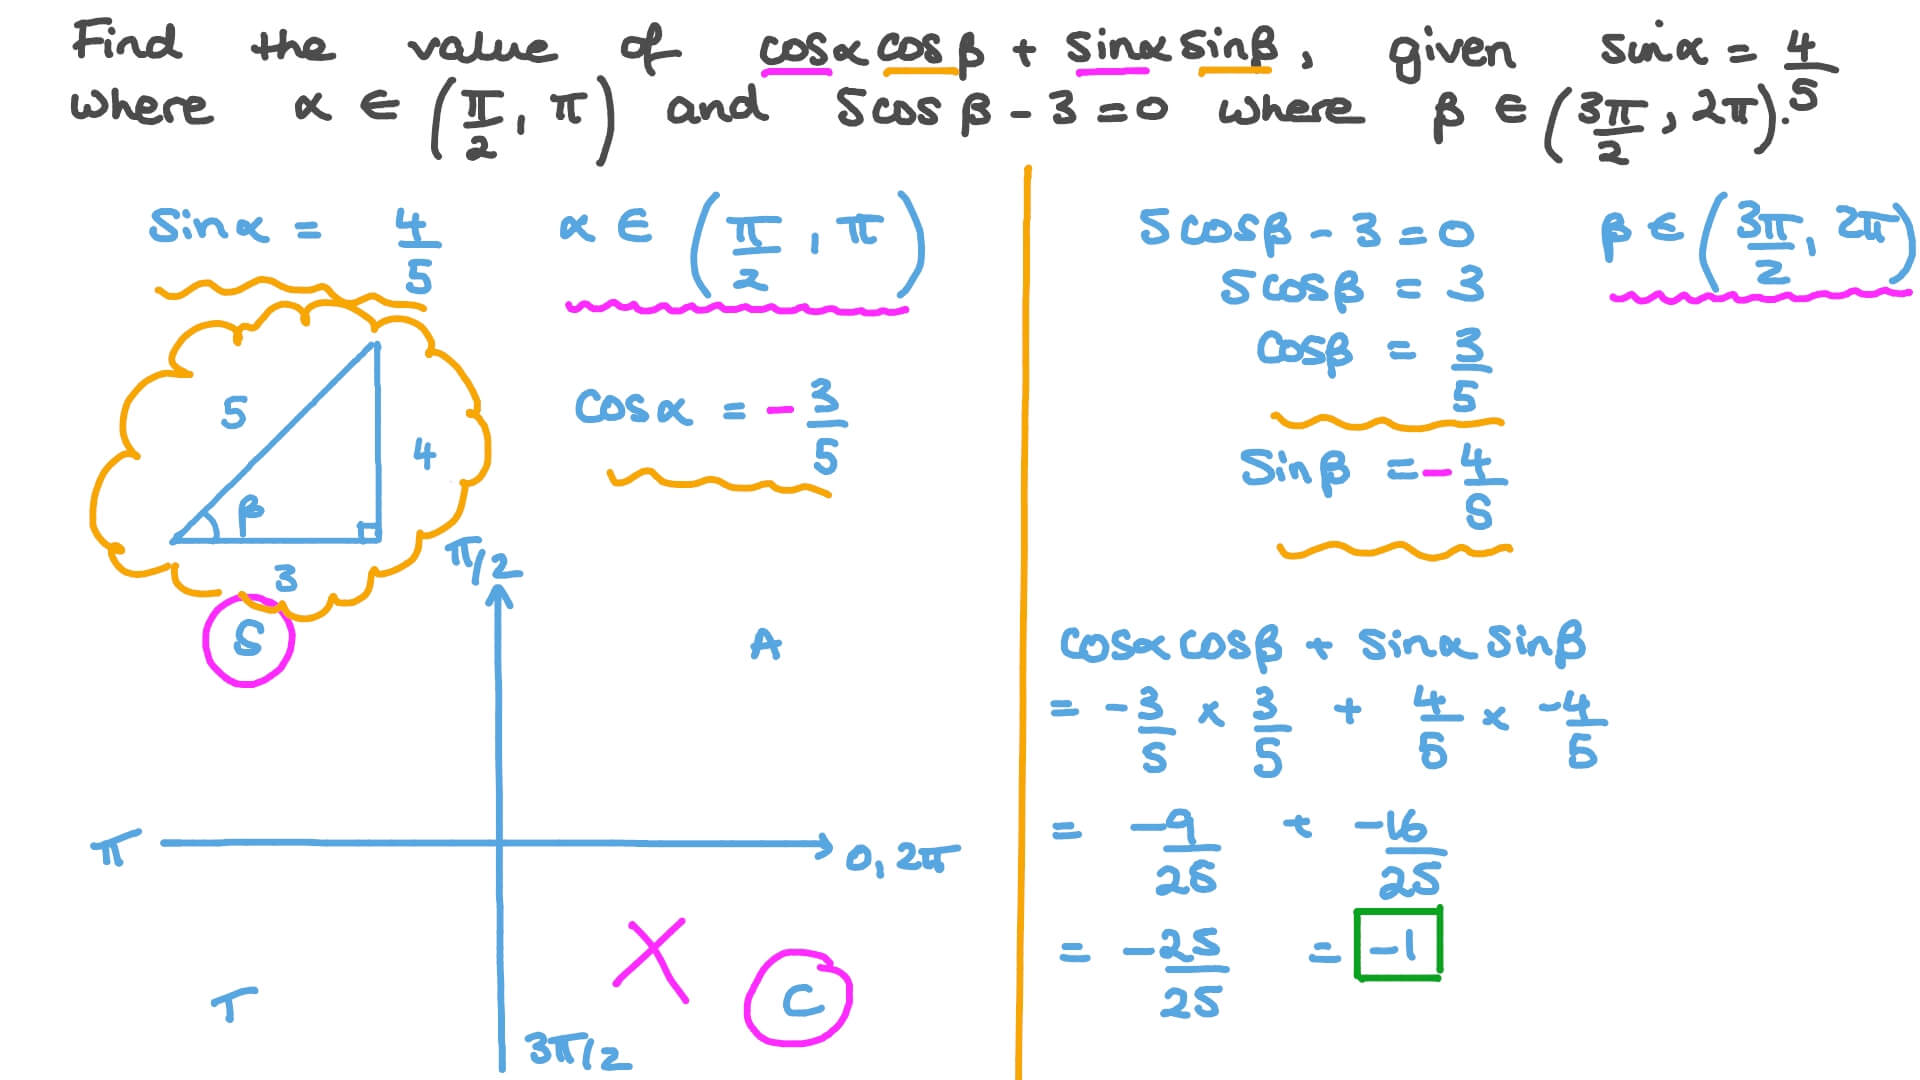 Find the value of cosα cosβ + sinα sinβ, given sinα = 4/5
where α ∈ (π/2, π) and 5cosβ - 3 = 0 where β ∈ (3π/2, 2π).
sinα = 4/5
α ∈ (π/2, π)
5
4
β
3
cosα = -3/5
S
A
T
C
π/2
π
0, 2π
3π/2
5cosβ - 3 = 0
β ∈ (3π/2, 2π)
5cosβ = 3
cosβ = 3/5
sinβ = -4/5
cosα cosβ + sinα sinβ
= -3/5 × 3/5 + 4/5 × -4/5
= -9/25 + -16/25
= -25/25 = -1